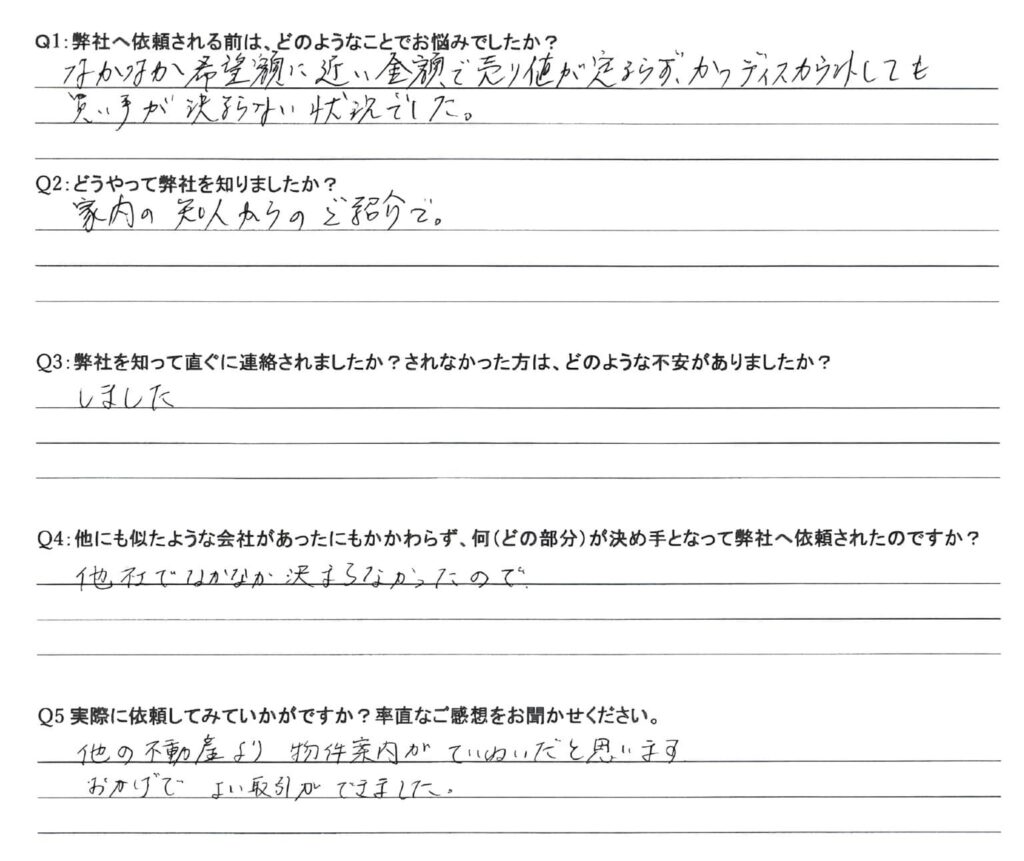 Q1：弊社へ依頼される前は、どのようなことでお悩みでしたか？
なかなか希望額に近い金額で売り値が定まらず、かつディスカウントしても
買い手が決まらない状況でした。
Q2：どうやって弊社を知りましたか？
家内の知人からのご紹介で。
Q3：弊社を知って直ぐに連絡されましたか？されなかった方は、どのような不安がありましたか？
しました
Q4：他にも似たような会社があったにもかかわらず、何（どの部分）が決め手となって弊社へ依頼されたのですか？
他社でなかなか決まらなかったので
Q5 実際に依頼してみていかがですか？率直なご感想をお聞かせください。
他の不動産より 物件案内がていねいだと思います
おかげで よい取引ができました。